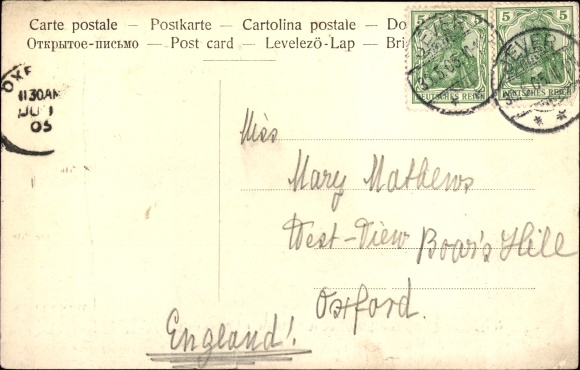 Carte postale — Postkarte — Cartolina postale — Do
Открытое-письмо — Post card — Levelező-Lap — Bri
5 5
5
JEVER
JEVER
DEUTSCHES REICH
DEUTSCHES REICH
OXF
1130AM
JU 1
05
Miss
Mary Mathews
West-View Boar's Hill
Oxford.
England!